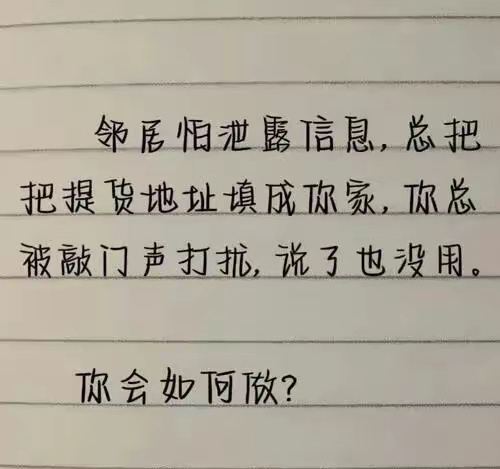 邻居怕泄露信息,总把
把提货地址填成你家,你总
被敲门声打扰,说了也没用。
你会如何做?